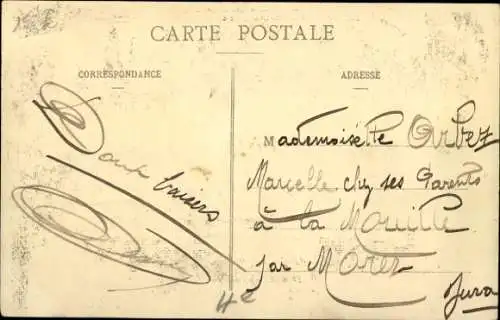 CARTE POSTALE
CORRESPONDANCE
Doux baisers
ADRESSE
Mademoiselle Arbez
Marcelle chez ses Parents
à la Mouille
par Morez
Jura
4e